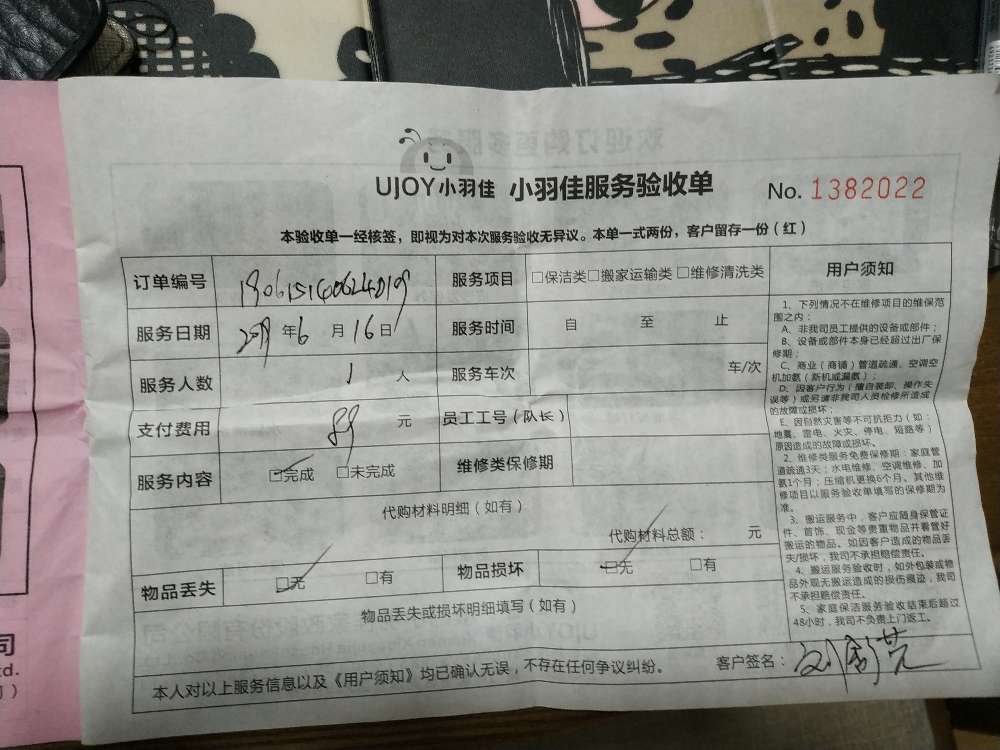 UJOY小羽佳 小羽佳服务验收单 No. 1382022
本验收单一经核签，即视为对本次服务验收无异议。本单一式两份，客户留存一份（红）
订单编号
服务项目 □保洁类□搬家运输类□维修清洗类
用户须知
服务日期 2019年6月16日
服务时间 自 至 止
服务人数 1 人
服务车次 车/次
支付费用 89 元
员工工号（队长）
服务内容 ☑完成 □未完成
维修类保修期
代购材料明细（如有）
代购材料总额： 元
物品丢失 ☑无 □有
物品损坏 ☑无 □有
物品丢失或损坏明细填写（如有）
1、下列情况不在维修项目的维保范
围之内：
A、非我司员工提供的设备或部件；
B、设备或部件本身已经超过出厂保
修期；
C、商业（商铺）管道疏通、空调空
机加氨（新机或漏氨）；
D、因客户行为（擅自装卸、操作失
误等）或另请非我司人员检修所造成
的故障或损坏；
E、因自然灾害等不可抗拒力（如：
地震、雷电、火灾、停电、短路等）
原因造成的故障或损坏。
2、维修类服务免费保修期：家庭管
道疏通3天；水电维修、空调维修、加
氨1个月；压缩机更换6个月。其他维
修项目以服务验收单填写的保修期为
准。
3、搬运服务中，客户应随身保管证
件、首饰、现金等贵重物品并看管好
搬运的物品。如因客户造成的物品丢
失/损坏，我司不承担赔偿责任。
4、搬运服务验收时，如外包装或物
品外观无搬运造成的损伤痕迹，我司
不承担赔偿责任。
5、家庭保洁服务验收结束后超过
48小时，我司不负责上门返工。
本人对以上服务信息以及《用户须知》均已确认无误，不存在任何争议纠纷。 客户签名：
司
td.